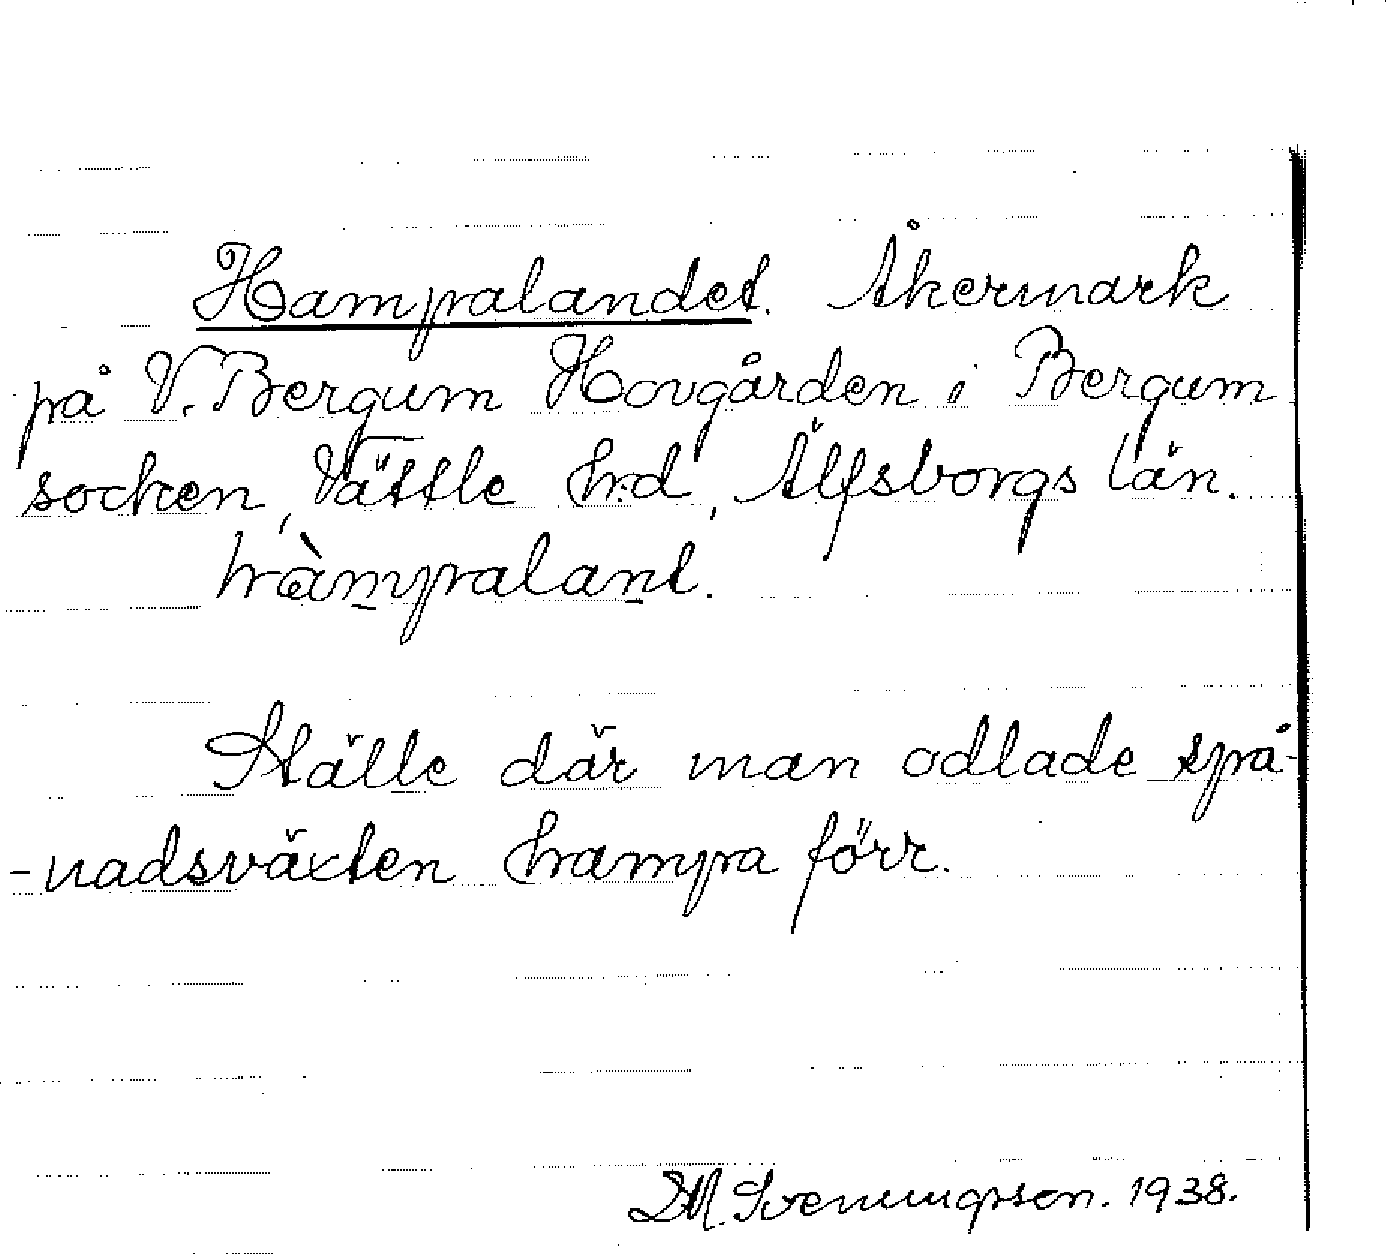 Hampalandet. Åkermark
på V. Bergum Hovgården i Bergum
socken, Vättle hrd, Älfsborgs län.
hàmpalant.
Ställe där man odlade spå-
-nadsväxten hampa förr.
D.M. Svenningson. 1938.